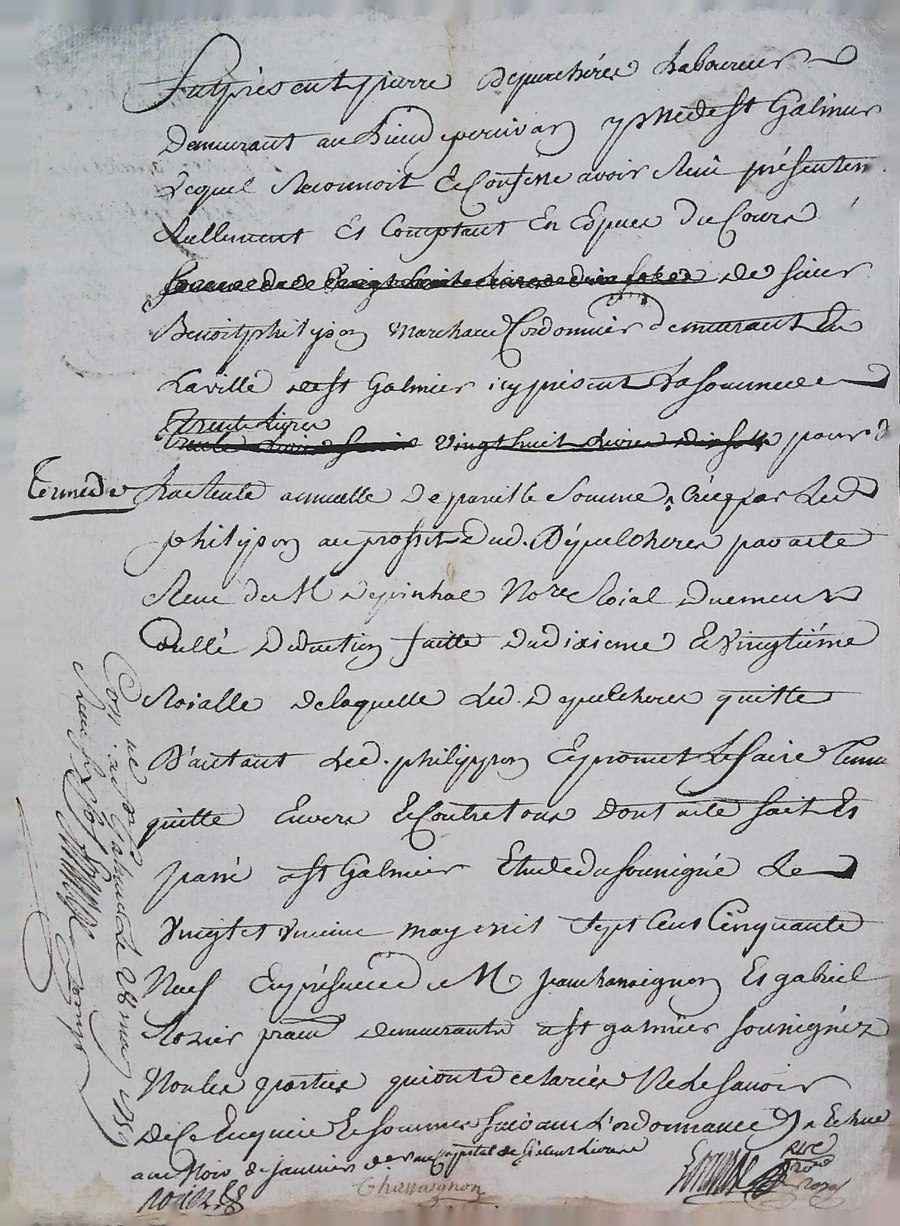 Fut présent pierre Depuchéres Laboureur
Demeurant au Lieu de per paroisse de st Galmier
Lequel Reconnoit Et Confesse avoir Reçû présentem
Réellement Et Comptant En Espèces du Cours
Somme de vingt huit Livres dix sols de sieur
Benoit philippon marchand Cordonnier demeurant En
La ville de st Galmier icy présent La Somme de
trente Livres
vingt huit Livres dix sols pour
terme de
La Rente annuelle De pareille Somme Créée par Led
philippon au proffit dud. Dépulcheres par acte
Reçu du M Depinhac No.re Roial
Deduction faitte du dixieme Et vingtiéme
Roialle de laquelle Led. Depulcheres quitte
D'autant Led. philippon Et promet Le faire tenir
quitte Envers Et Contre tous Dont acte fait Et
passé a st Galmier Etude du soussigné Le
vingt et unieme may mil Sept Cent Cinquante
Neuf En présence de M Jean Chassaignon Et gabriel
Rozier demeurants a st galmier soussignez
Non les parties qui ont déclarées Ne Le savoir
De Ce Enquise Et Sommes suivant L'ordonnance
au Mois de Janvier
Con.le a st Galmier Le 28 may 1759
Reçu
Chassaignon
rozier